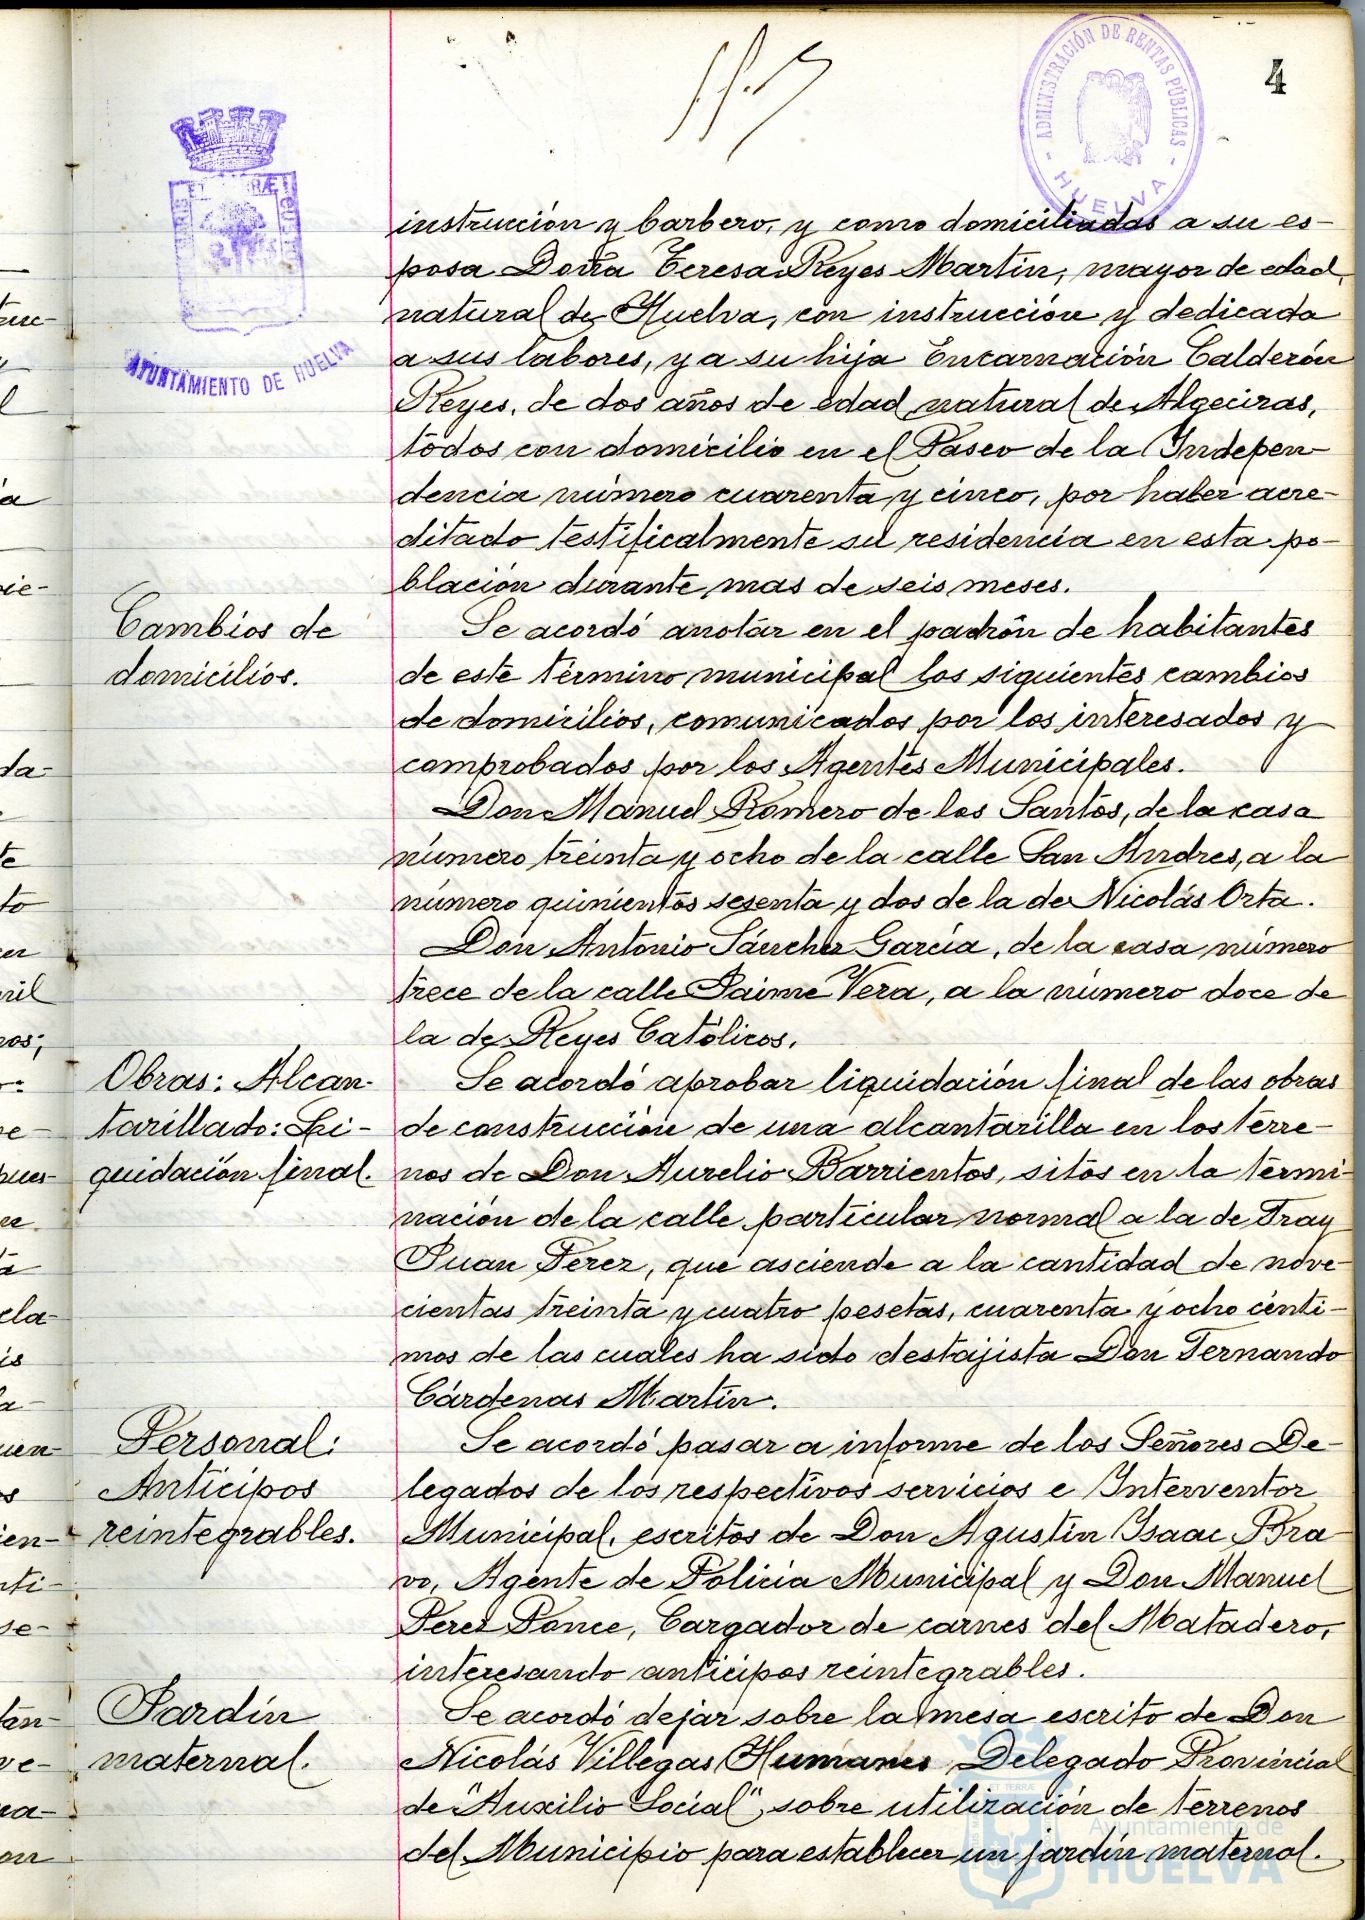 4
ADMINISTRACIÓN DE RENTAS PÚBLICAS
- HUELVA -
AYUNTAMIENTO DE HUELVA
instrucción y barbero, y como domiciliadas a su es-
posa Doña Teresa Reyes Martín, mayor de edad,
natural de Huelva, con instrucción y dedicada
a sus labores, y a su hija Encarnación Calderón
Reyes, de dos años de edad natural de Algeciras,
todos con domicilio en el Paseo de la Indepen-
dencia número cuarenta y cinco, por haber acre-
ditado testificalmente su residencia en esta po-
blación durante mas de seis meses.
Cambios de
domicilios.
Se acordó anotar en el padrón de habitantes
de este término municipal los siguientes cambios
de domicilios, comunicados por los interesados y
comprobados por los Agentes Municipales.
Don Manuel Romero de los Santos, de la casa
número treinta y ocho de la calle San Andres, a la
número quinientos sesenta y dos de la de Nicolás Orta.
Don Antonio Sánchez García, de la casa número
trece de la calle Jaime Vera, a la número doce de
la de Reyes Católicos.
Obras: Alcan-
tarillado: Li-
quidación final.
Se acordó aprobar liquidación final de las obras
de construcción de una alcantarilla en los terre-
nos de Don Aurelio Barrientos, sitos en la termi-
nación de la calle particular normal a la de Fray
Juan Perez, que asciende a la cantidad de nove-
cientas treinta y cuatro pesetas, cuarenta y ocho cénti-
mos de las cuales ha sido destajista Don Fernando
Cárdenas Martín.
Personal:
Anticipos
reintegrables.
Se acordó pasar a informe de los Señores De-
legados de los respectivos servicios e Interventor
Municipal, escritos de Don Agustín Isaac Bra-
vo, Agente de Policia Municipal y Don Manuel
Perez Ponce, Cargador de carnes del Matadero,
interesando anticipos reintegrables.
Jardín
maternal.
Se acordó dejar sobre la mesa escrito de Don
Nicolás Villegas Humanes Delegado Provincial
de "Auxilio Social", sobre utilización de terrenos
del Municipio para establecer un jardín maternal.
Ayuntamiento de
HUELVA